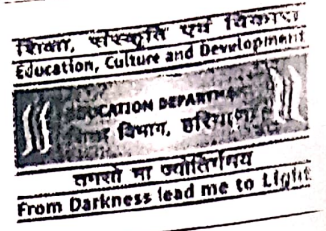 शिक्षा, संस्कृति एवं विकास
Education, Culture and Development
EDUCATION DEPARTMENT
विभाग, हरियाणा
तमसो मा ज्योतिर्गमय
From Darkness lead me to Light